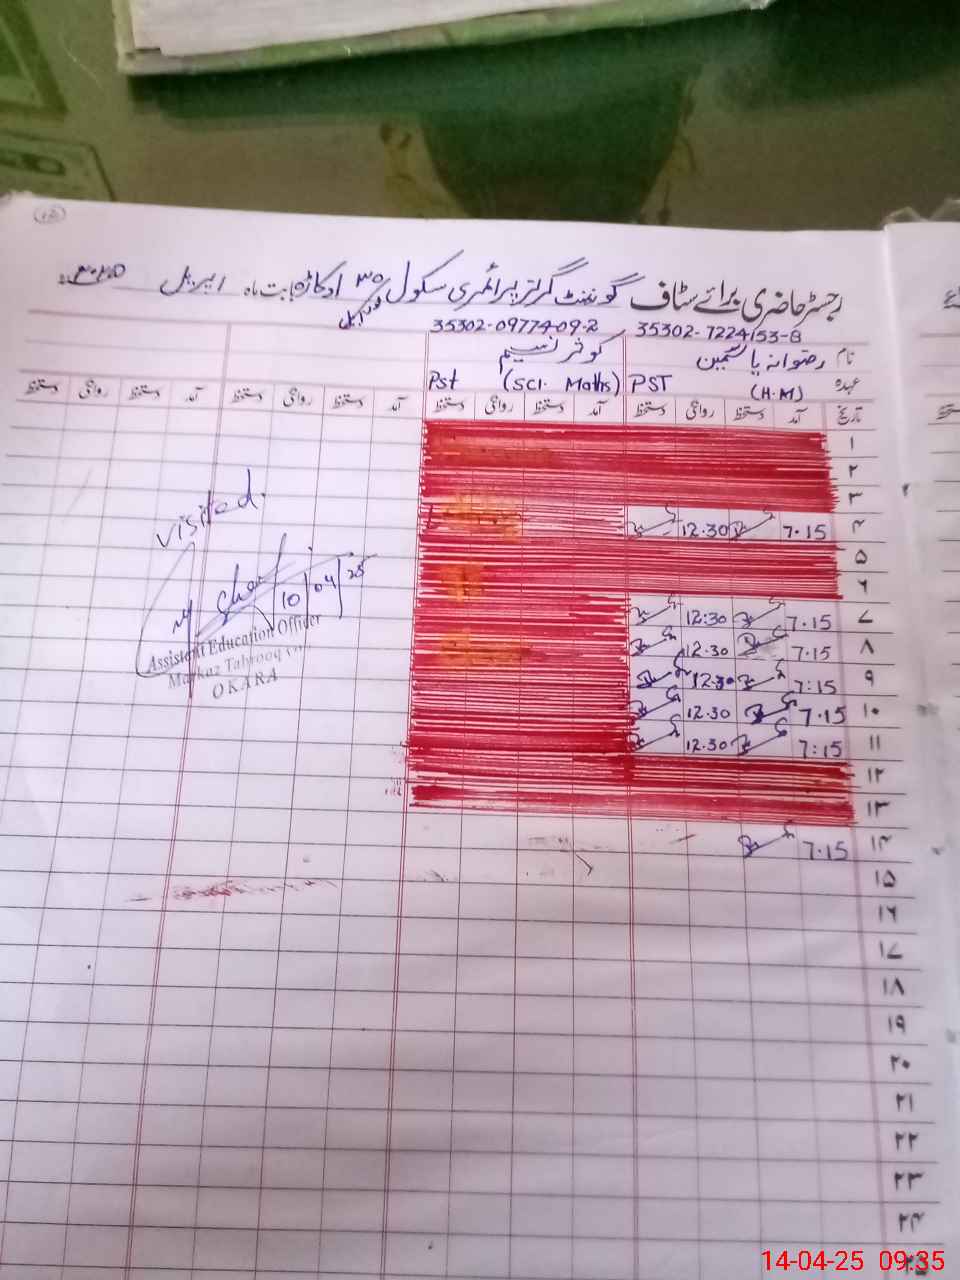 رجسٹر حاضری برائے سٹاف گورنمنٹ گرلز پرائمری سکول ۳۵ اوکاڑہ بابت ماہ اپریل ۲۰۲۵
35302-7224153-8 35302-09774-09-2
نام رضوانہ یاسمین کوثر نسیم
عہدہ PST (H.M) Pst (SCI. Maths)
تاریخ آمد دستخط روانگی دستخط آمد دستخط روانگی دستخط آمد دستخط روانگی دستخط آمد دستخط روانگی دستخط
۱
۲
۳
۴ 7.15 12.30
۵
۶
۷ 7.15 12:30
۸ 7.15 12.30
۹ 7:15 12.30
۱۰ 7.15 12.30
۱۱ 7:15 12.30
۱۲
۱۳
۱۴ 7.15
۱۵
۱۶
۱۷
۱۸
۱۹
۲۰
۲۱
۲۲
۲۳
۲۴
۲۵
visited.
10/04/25
Assistant Education Officer
Markaz
OKARA
14-04-25 09:35